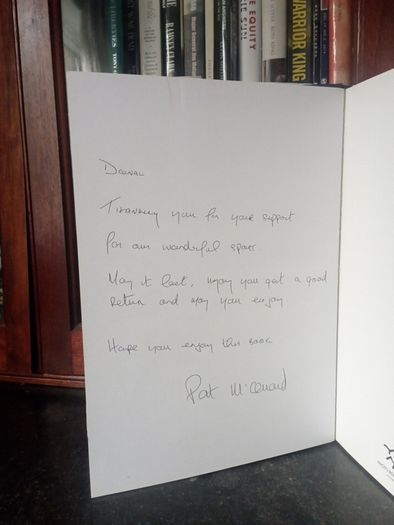 EQUITY
WARRIOR KING
Donal
Thanking you for your support
for our wonderful sport.
May it last, may you get a good
return and may you enjoy
Hope you enjoy this book
Pat